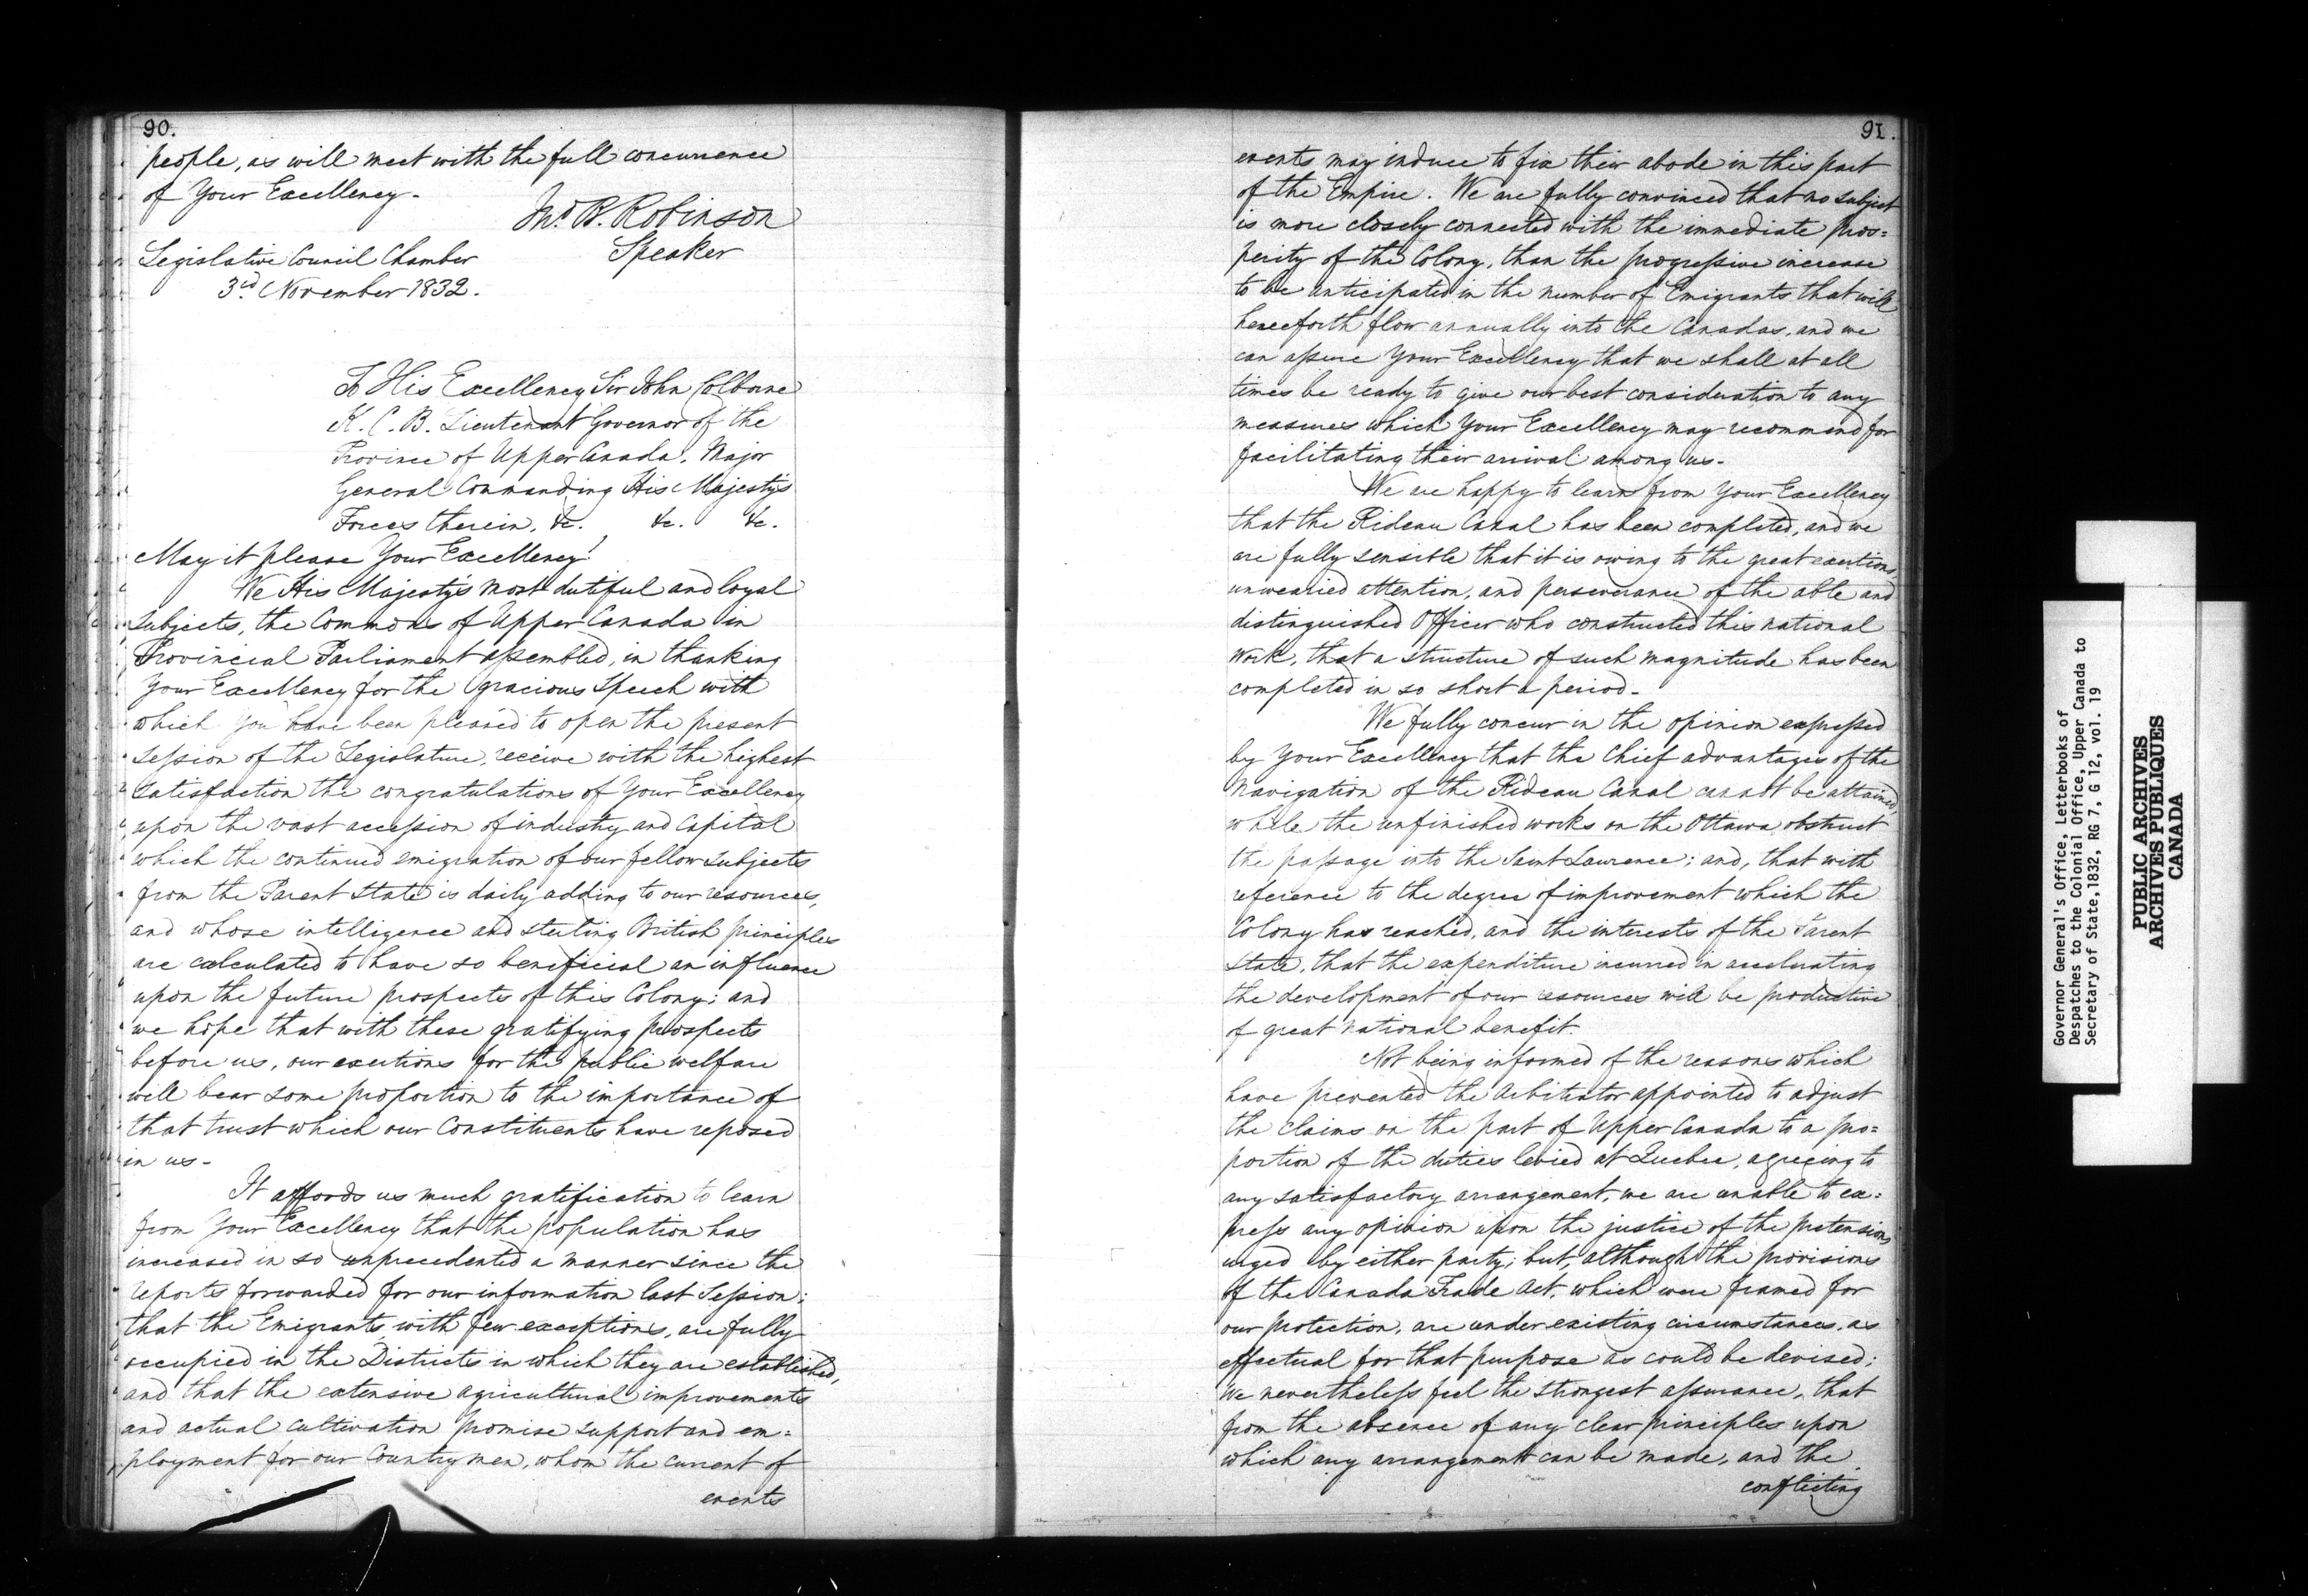 90.
people, as will meet with the full concurrence
of Your Excellency.
Jno. B. Robinson
Speaker
Legislative Council Chamber
3rd November 1832.
To His Excellency Sir John Colborne
K. C. B. Lieutenant Governor of the
Province of Upper Canada, Major
General Commanding His Majesty's
Forces therein, &c. &c. &c.
May it please Your Excellency!
We His Majesty's most dutiful and loyal
subjects, the Commons of Upper Canada in
Provincial Parliament assembled, in thanking
Your Excellency for the gracious Speech with
which you have been pleased to open the present
Session of the Legislature, receive with the highest
satisfaction the congratulations of Your Excellency
upon the vast accession of industry and Capital
which the continued emigration of our fellow subjects
from the Parent State is daily adding to our resources,
and whose intelligence and sterling British principles
are calculated to have so beneficial an influence
upon the future prospects of this Colony; and
we hope that with these gratifying prospects
before us, our exertions for the public welfare
will bear some proportion to the importance of
that trust which our Constituents have reposed
in us.
It affords us much gratification to learn
from Your Excellency that the population has
increased in so unprecedented a manner since the
reports forwarded for our information last Session;
that the Emigrants with few exceptions, are fully
occupied in the Districts in which they are established,
and that the extensive agricultural improvements
and actual cultivation promise support and em=
ployment for our Countrymen, whom the current of
events
91.
events may induce to fix their abode in this part
of the Empire. We are fully convinced that no subject
is more closely connected with the immediate pros=
perity of the Colony, than the progressive increase
to be anticipated in the number of Emigrants that will
henceforth flow annually into the Canadas, and we
can assure Your Excellency that we shall at all
times be ready to give our best consideration to any
measures which Your Excellency may recommend for
facilitating their arrival among us.
We are happy to learn from Your Excellency
that the Rideau Canal has been completed, and we
are fully sensible that it is owing to the great exertions,
unwearied attention, and perseverance of the able and
distinguished Officer who constructed this national
work, that a structure of such magnitude has been
completed in so short a period.
We fully concur in the opinion expressed
by Your Excellency that the Chief advantages of the
Navigation of the Rideau Canal cannot be attained,
while the unfinished works on the Ottawa obstruct
the passage into the Saint Lawrence; and, that with
reference to the degree of improvement which the
Colony has reached, and the interests of the Parent
State, that the expenditure incurred in accelerating
the development of our resources will be productive
of great national benefit.
Not being informed of the reasons which
have prevented the Arbitrator appointed to adjust
the claims on the part of Upper Canada to a pro=
portion of the duties levied at Quebec, agreeing to
any satisfactory arrangement, we are unable to ex=
press any opinion upon the justice of the pretensions
urged by either party; but, although the provisions
of the Canada Trade Act, which were framed for
our protection, are under existing circumstances, as
effectual for that purpose as could be devised;
We nevertheless feel the strongest assurance, that
from the absence of any clear principles upon
which any arrangement can be made, and the
conflicting
Governor General's Office, Letterbooks of
Despatches to the Colonial Office, Upper Canada to
Secretary of State, 1832, RG 7, G 12, vol. 19
PUBLIC ARCHIVES
ARCHIVES PUBLIQUES
CANADA